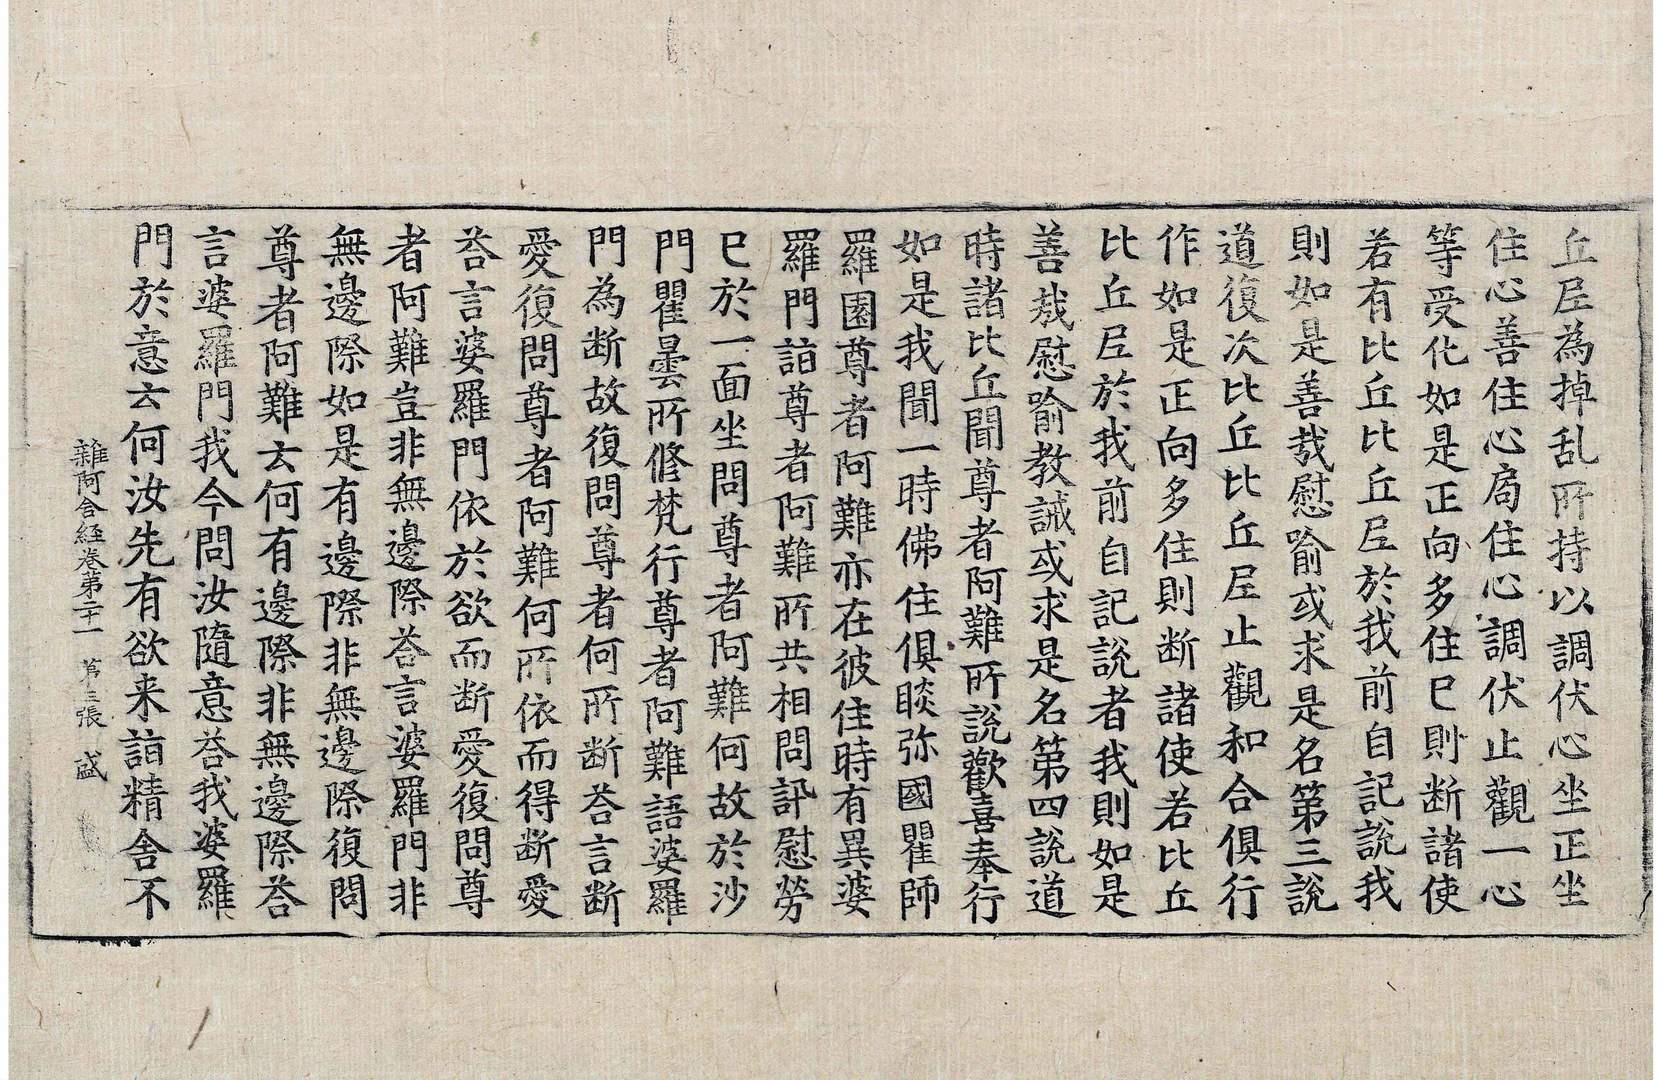 丘𡰱為掉乱所持以調伏心坐正坐
住心善住心局住心調伏止觀一心
等受化如是正向多住已則断諸使
若有比丘比丘𡰱於我前自記說我
則如是善㢤慰喻或求是名第三說
道復次比丘比丘𡰱止觀和合俱行
作如是正向多住則断諸使若比丘
比丘𡰱於我前自記說者我則如是
善㢤慰喻教誡或求是名第四說道
時諸比丘聞尊者阿難所說歡喜奉行
如是我聞一時佛住俱睒弥國瞿師
羅園尊者阿難亦在彼住時有異婆
羅門詣尊者阿難所共相問訊慰勞
已於一面坐問尊者阿難何故於沙
門瞿曇所修梵行尊者阿難語婆羅
門為断故復問尊者何所断荅言断
愛復問尊者阿難何所依而得断愛
荅言婆羅門依於欲而断愛復問尊
者阿難豈非無邊際荅言婆羅門非
無邊際如是有邊際非無邊際復問
尊者阿難云何有邊際非無邊際荅
言婆羅門我今問汝隨意荅我婆羅
門於意云何汝先有欲来詣精舍不
雜阿含経卷第二十一 第三張 盛